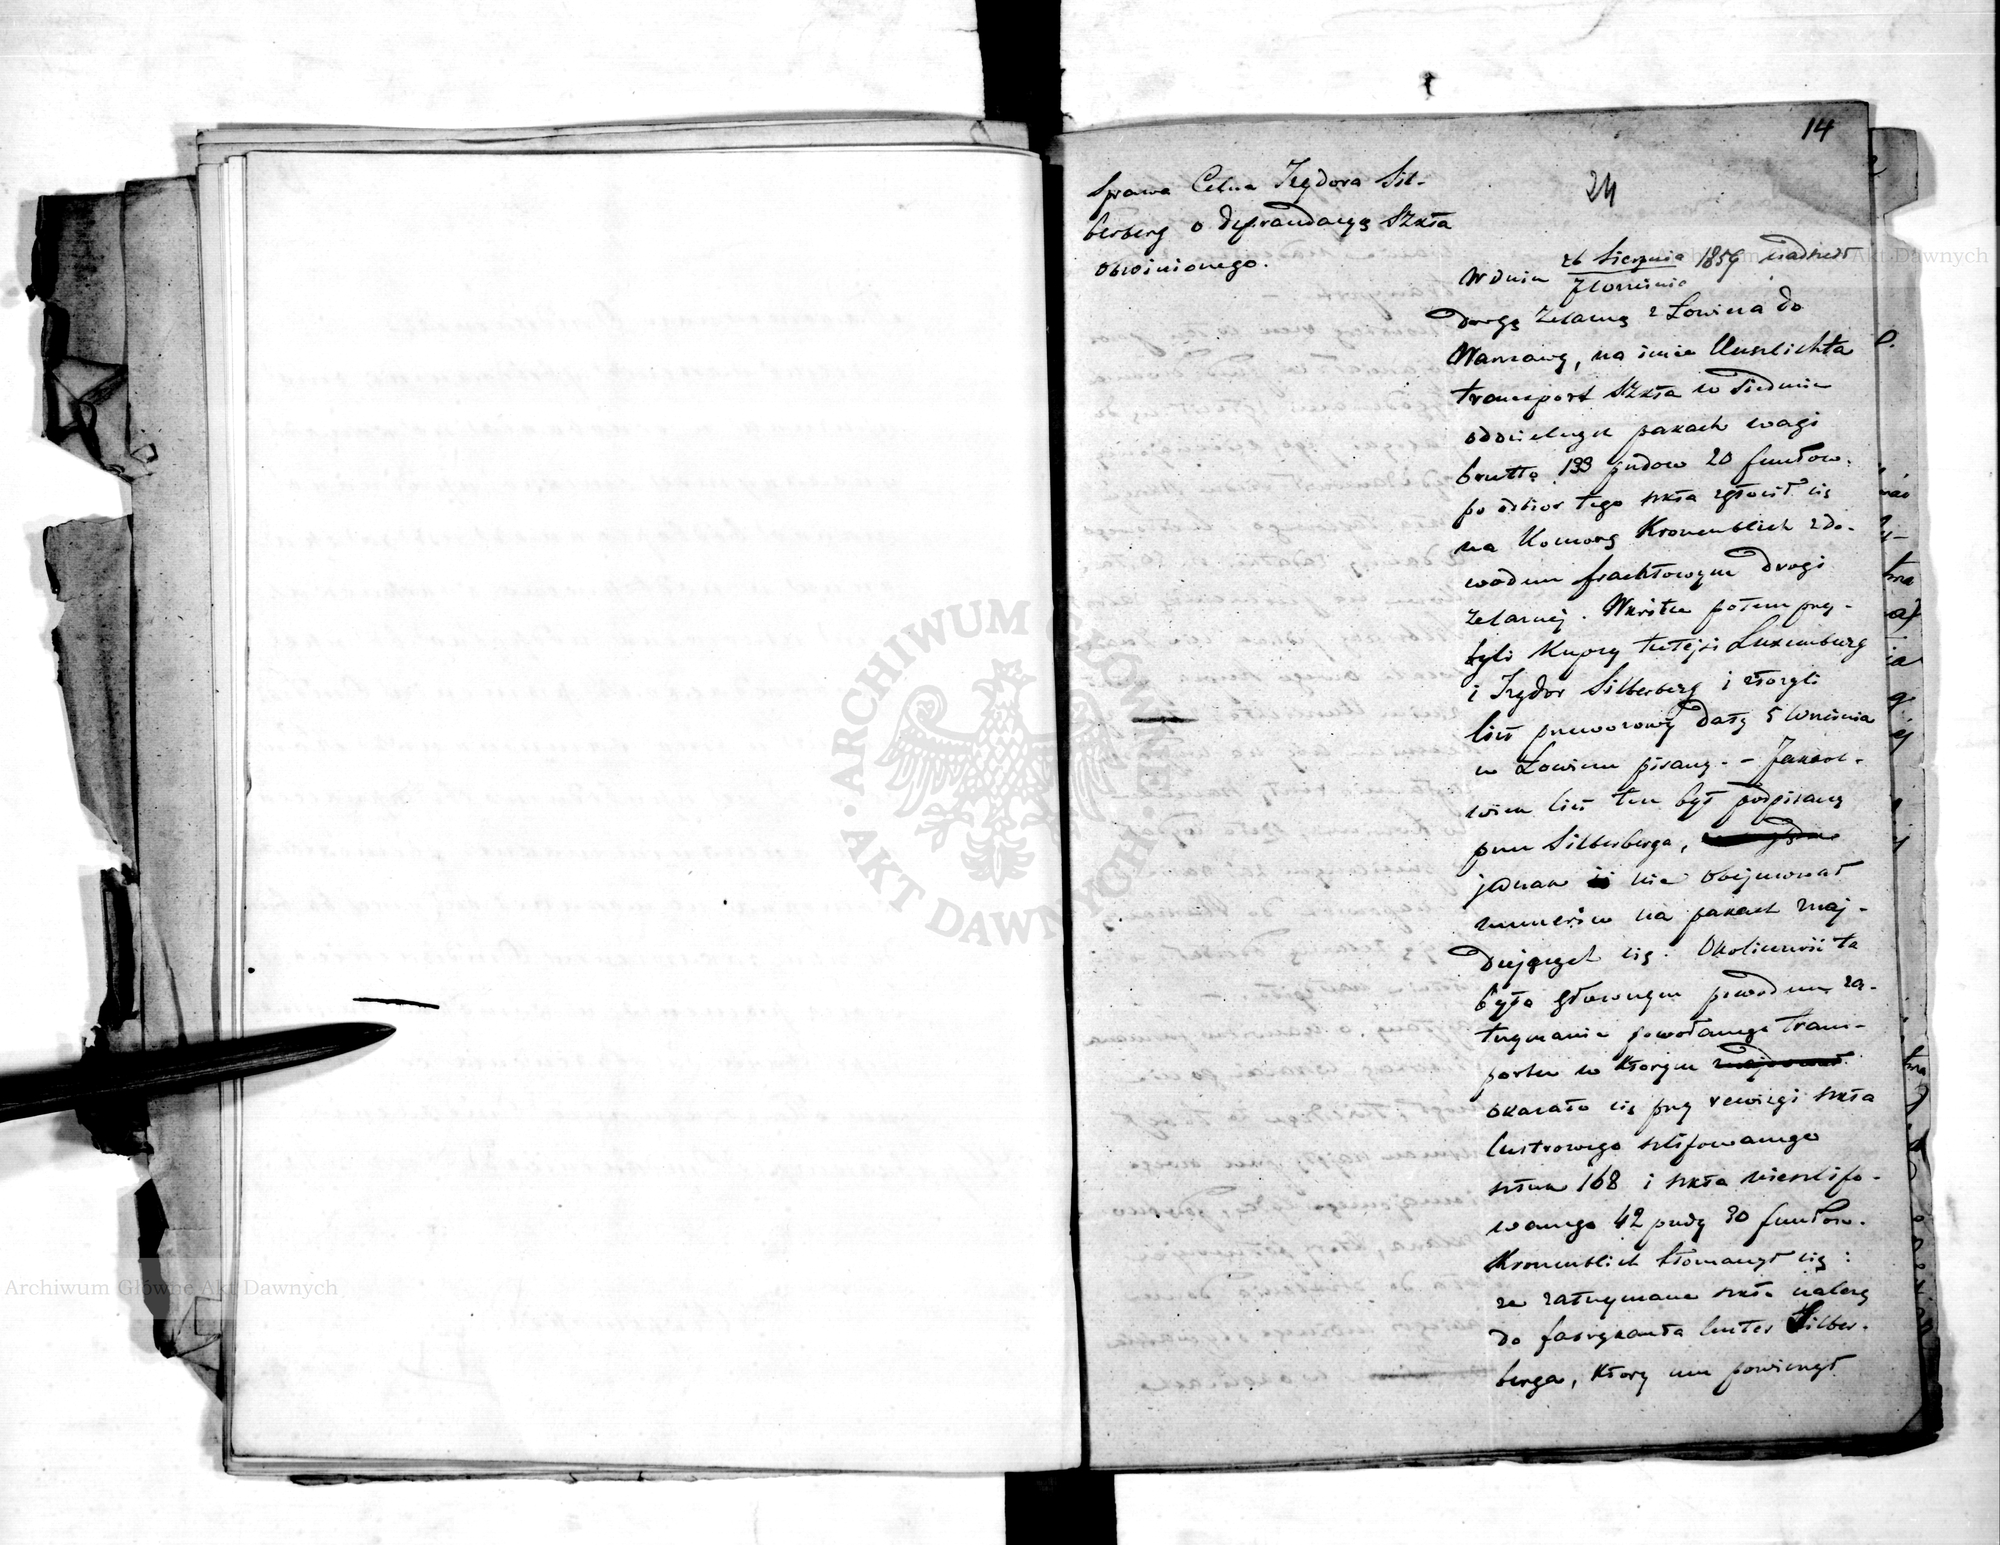 14
24
Sprawa Celna Izydora Sil-
berberg o defraudacyą Szkła
obwinionego.
W dniu 26 Sierpnia / 7 Września 1859 nadszedł
drogą żelazną z Łowicza do
Warszawy, na imie Unszlichta
transport szkła w siedmiu
oddzielnych pakach wagi
brutto 133 pudow 20 funtow.
po odbior tego szkła zgłosił się
na Komorę Kronenblich z do-
wodem frachtowym drogi
żelaznej. Wkrótce potem przy-
byli Kupcy tutejsi Luxemburg
i Izydor Silberberg i złożyli
list przewozowy daty 5 Września
w Łowiczu pisany. - Jakkol-
wiek list ten był podpisany
przez Silberberga,
jednak nie obejmował
numerów na pakach znaj-
dujących się. Okoliczność ta
była głownym powodem za-
trzymania powołanego trans-
portu w którym znajdował
okazało się przy rewizyi szkła
lustrowego szlifowanego
sztuk 168 i szkła nieszlifo-
wanego 42 pudy 30 funtow.
Kronenblich tłomaczył się:
że zatrzymane szkło należy
do fabrykanta luster Silber-
berga, który mu powierzył
ARCHIWUM GŁÓWNE · AKT DAWNYCH ·
Archiwum Główne Akt Dawnych
Akt Dawnych